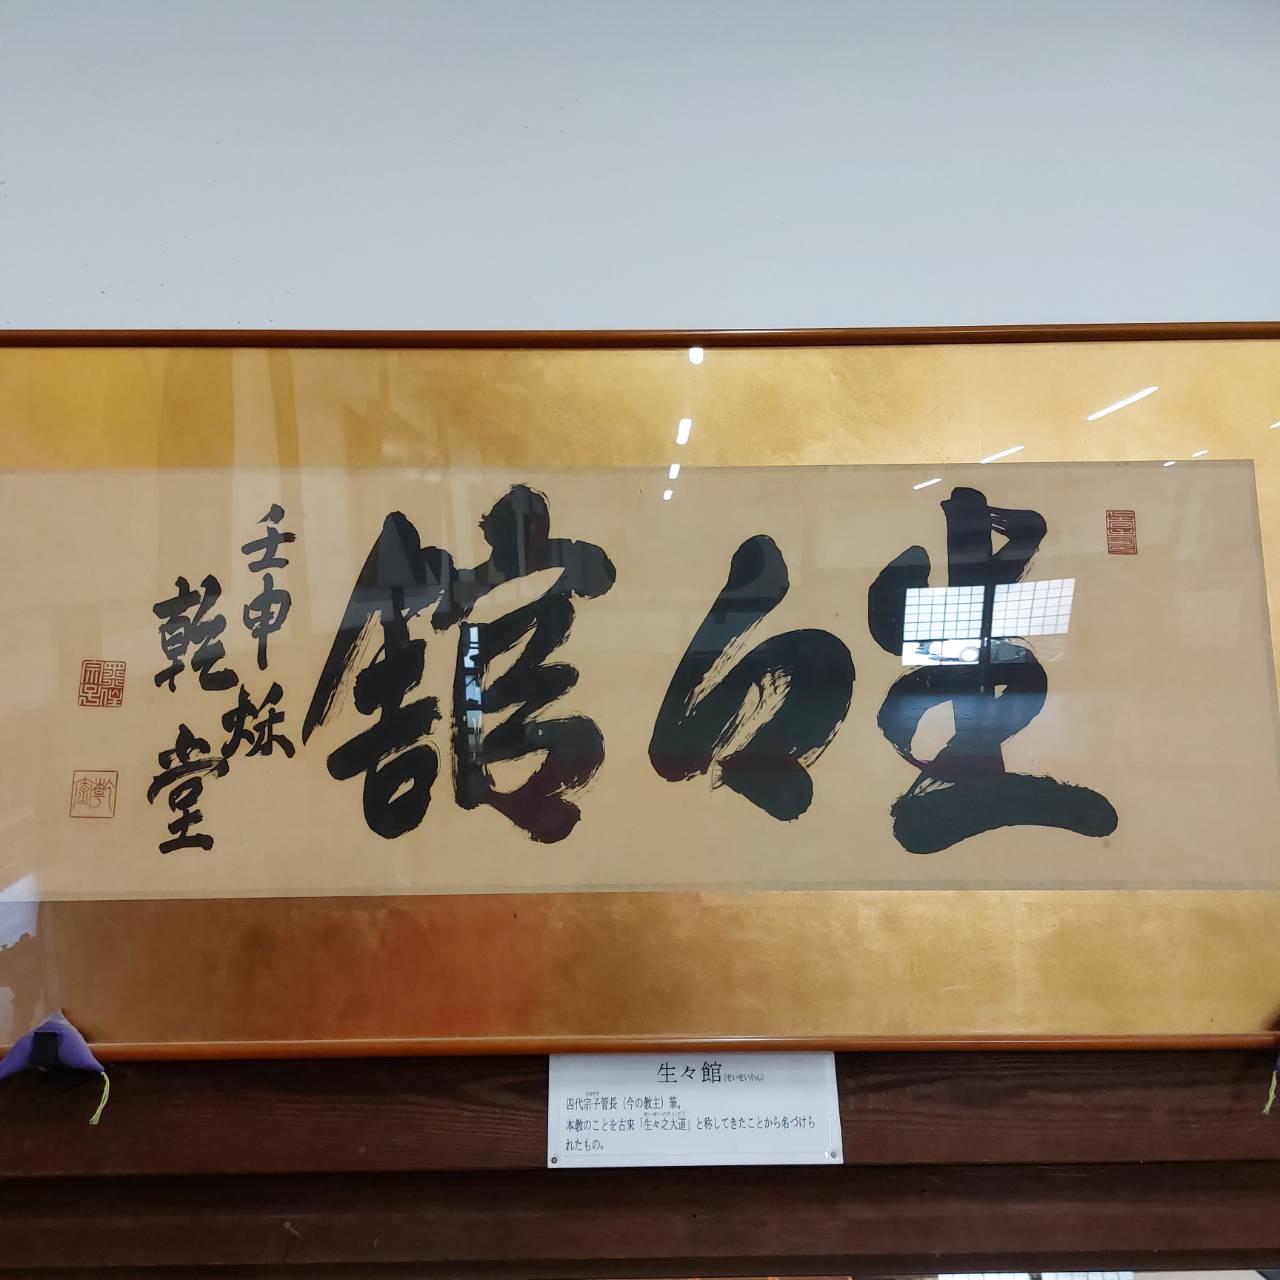 生々館
壬申秌
乾堂
生々館(せいせいかん)
四代宗子管長(今の教主)筆。
本教のことを古来「生々之大道」と称してきたことから名づけら
れたもの。